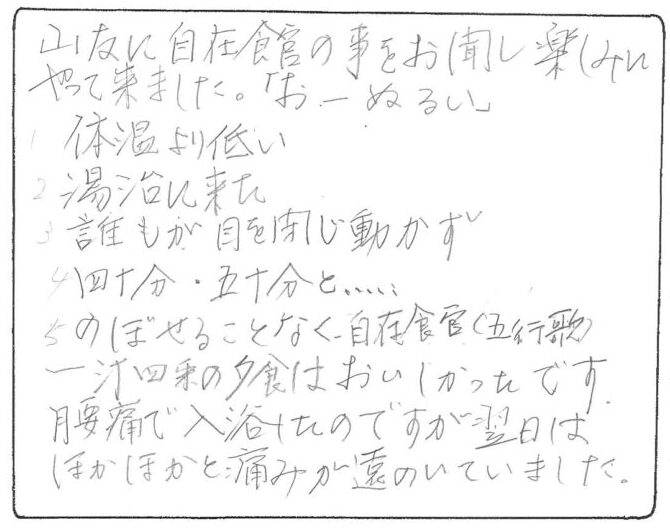 山友に自在館の事をお聞し楽しみに
やって来ました。「おーぬるい」
1 体温より低い
2 湯治に来た
3 誰もが目を閉じ動かず
4 四十分・五十分と.....
5 のぼせることなく自在館(五行歌)
一汁四菜の夕食はおいしかったです
腰痛で入浴したのですが翌日は
ほかほかと痛みが遠のいていました。